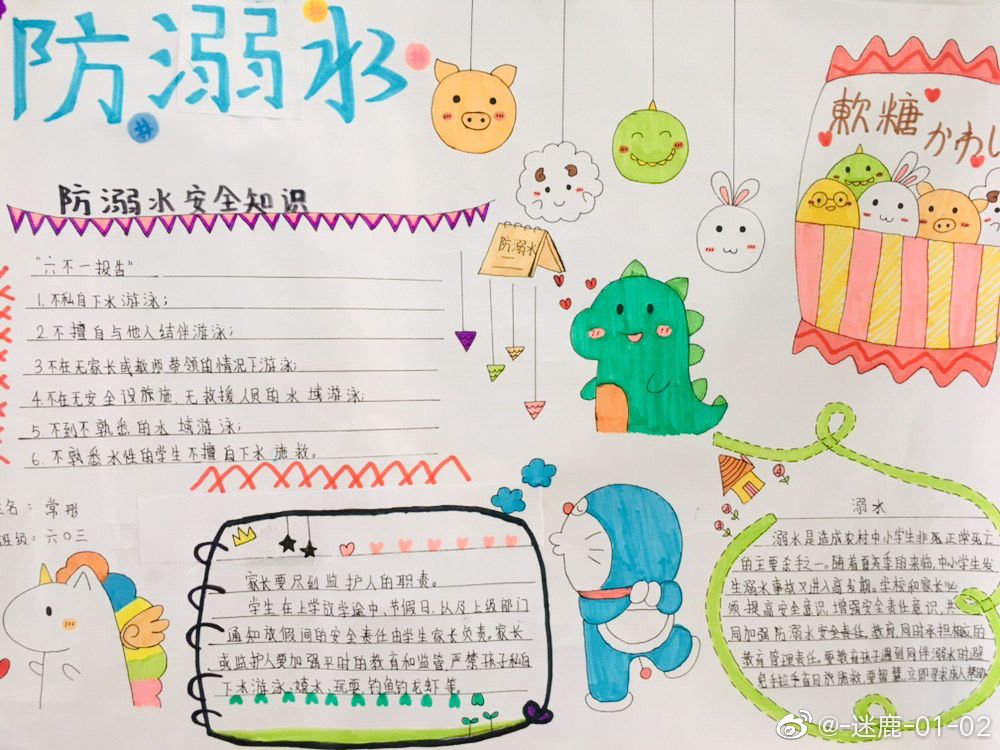 防溺水
防溺水安全知识
"六不一报告"
1.不私自下水游泳；
2.不擅自与他人结伴游泳；
3.不在无家长或教师带领的情况下游泳；
4.不在无安全设施、无救援人员的水域游泳；
5.不到不熟悉的水域游泳；
6.不熟悉水性的学生不擅自下水施救。
名：常彤
班级：六〇三
防溺水
軟糖
かわい
家长要尽到监护人的职责。
学生在上学放学途中、节假日、以及上级部门
通知放假间的安全责任由学生家长负责。家长
或监护人要加强平时的教育和监管，严禁孩子私自
下水游泳、嬉水、玩耍、钓鱼钓龙虾等。
溺水
溺水是造成农村中小学生非正常死亡
的主要杀手之一。随着夏季来临，中小学生发
生溺水事故又进入高发期。学校和家长必
须提高安全意识，增强安全责任意识，共
同加强防溺水安全责任教育，同时承担相应的
教育管理责任。要教育孩子遇到同伴溺水时避
免手拉手盲目施救，要智慧，立即寻求成人帮助
@-迷鹿-01-02